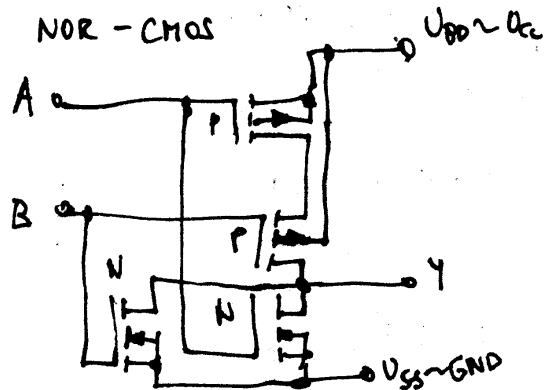 NOR - CMOS
U_DD ~ U_CC
A
P
B
P
N
N
Y
U_SS ~ GND